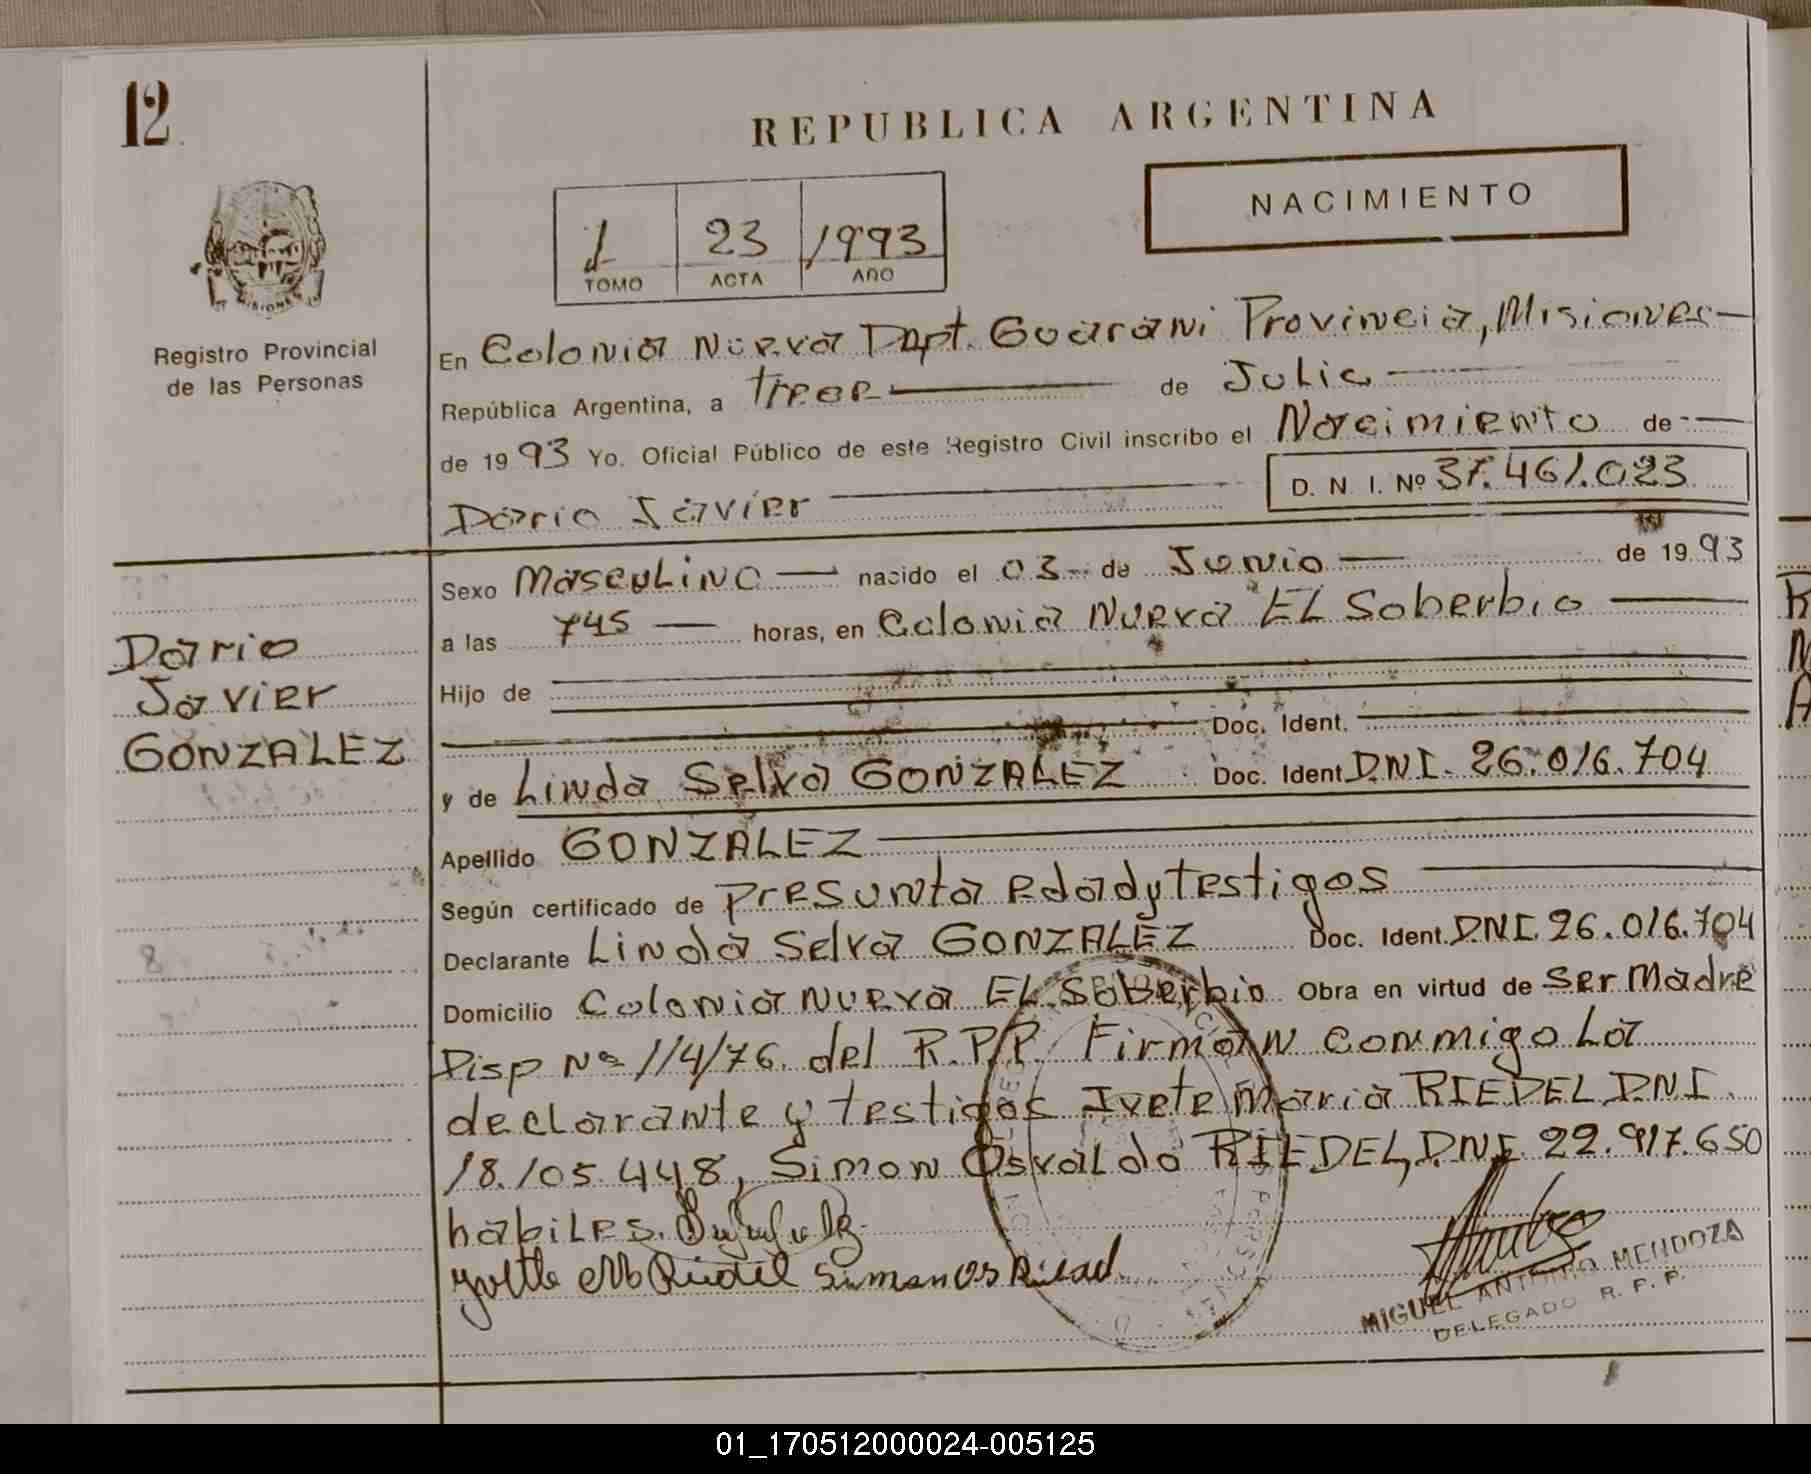 12
REPUBLICA ARGENTINA
NACIMIENTO
1 23 1993
TOMO ACTA AÑO
MISIONES
Registro Provincial
de las Personas
En Colonia Nueva Dept. Guarani Provincia, Misiones
República Argentina, a tres de Julio
de 1993 Yo. Oficial Público de este Registro Civil inscribo el Nacimiento de
D. N. I. Nº 37.461.023
Dario Javier
Sexo Masculino nacido el 03 de Junio de 1993
a las 745 horas, en Colonia Nueva EL Soberbio
Hijo de
Doc. Ident.
y de Linda Selva GONZALEZ Doc. Ident. DNI. 26.016.704
Apellido GONZALEZ
Según certificado de Presunta edad y testigos
Declarante Linda Selva GONZALEZ Doc. Ident. DNI. 26.016.704
Domicilio Colonia Nueva EL Soberbio Obra en virtud de ser Madre
Disp Nº 114/76 del R.P.P. Firman conmigo La
declarante y testigos Ivete Maria RIEDEL DNI.
18.105.448, Simon Osvaldo RIEDEL, DNI. 22.917.650
habiles.
Dario
Javier
GONZALEZ
MIGUEL ANTONIO MENDOZA
DELEGADO R. P. P.
01_170512000024-005125